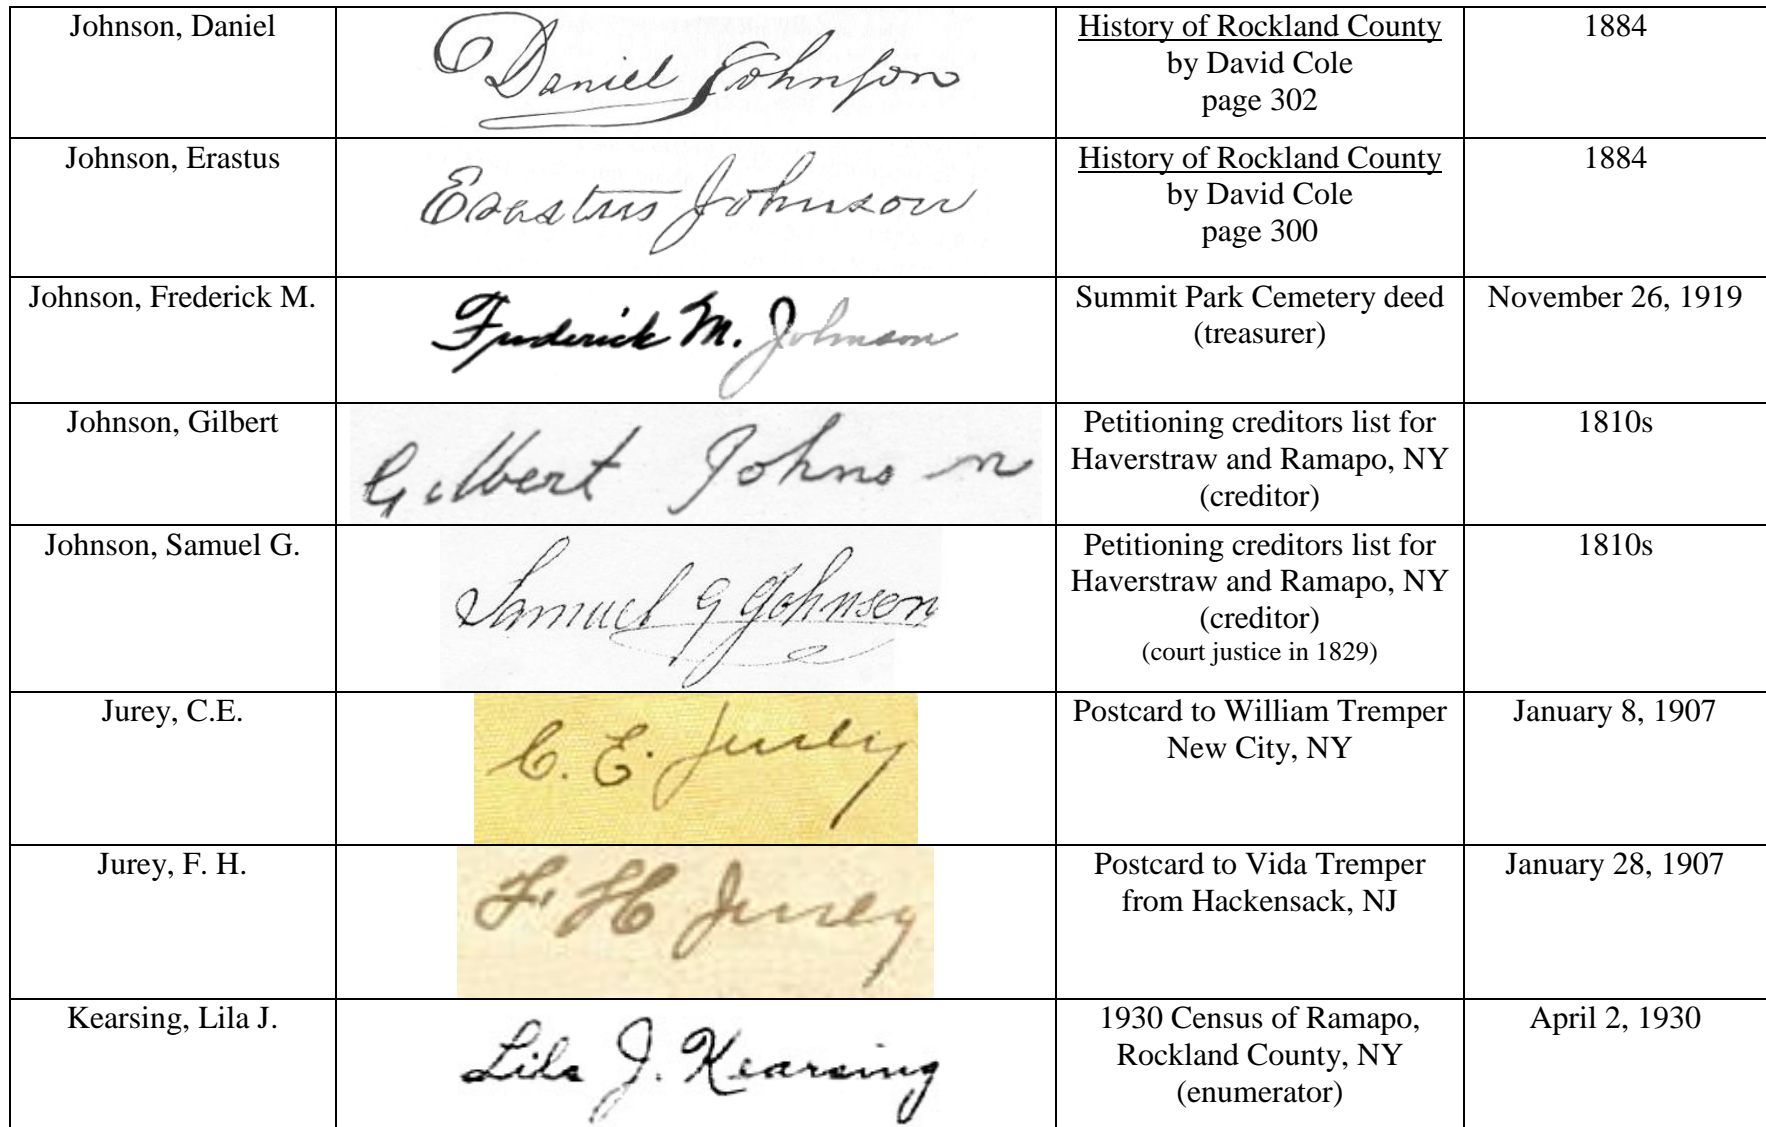 Johnson, Daniel
Daniel Johnson
History of Rockland County
by David Cole
page 302
1884
Johnson, Erastus
Erastus Johnson
History of Rockland County
by David Cole
page 300
1884
Johnson, Frederick M.
Frederick M. Johnson
Summit Park Cemetery deed
(treasurer)
November 26, 1919
Johnson, Gilbert
Gilbert Johnson
Petitioning creditors list for
Haverstraw and Ramapo, NY
(creditor)
1810s
Johnson, Samuel G.
Samuel G Johnson
Petitioning creditors list for
Haverstraw and Ramapo, NY
(creditor)
(court justice in 1829)
1810s
Jurey, C.E.
C. E. Jurey
Postcard to William Tremper
New City, NY
January 8, 1907
Jurey, F. H.
F. H Jurey
Postcard to Vida Tremper
from Hackensack, NJ
January 28, 1907
Kearsing, Lila J.
Lila J. Kearsing
1930 Census of Ramapo,
Rockland County, NY
(enumerator)
April 2, 1930